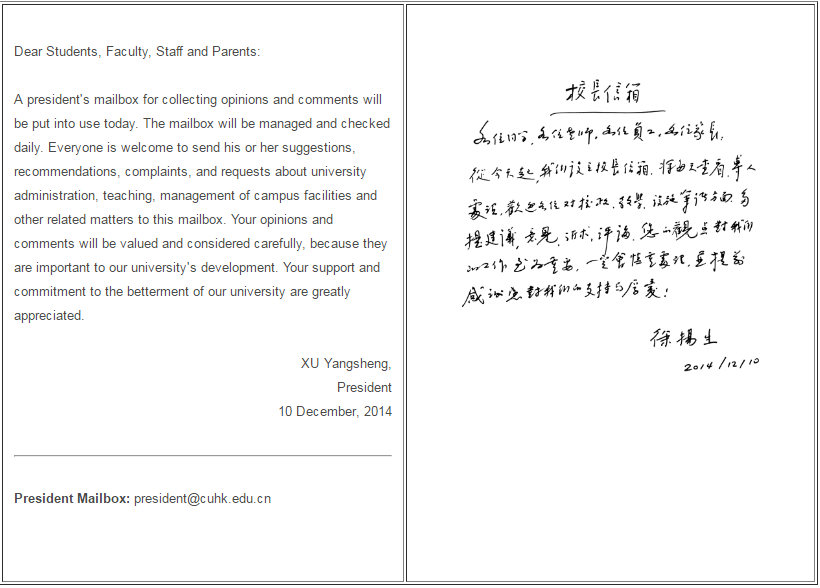 Dear Students, Faculty, Staff and Parents:
A president's mailbox for collecting opinions and comments will
be put into use today. The mailbox will be managed and checked
daily. Everyone is welcome to send his or her suggestions,
recommendations, complaints, and requests about university
administration, teaching, management of campus facilities and
other related matters to this mailbox. Your opinions and
comments will be valued and considered carefully, because they
are important to our university's development. Your support and
commitment to the betterment of our university are greatly
appreciated.
XU Yangsheng,
President
10 December, 2014
President Mailbox: president@cuhk.edu.cn
校長信箱
各位同学,各位老师,各位員工,各位家長,
從今天起,我们設立校長信箱,每天查看,專人
處理,歡迎各位对校政、教學、設施等诸方面多
提建議,意見,诉求,评论,您的觀点對我们
的工作至为重要,一定會慎重處理,並提前
感谢您對我们的支持与厚愛!
徐揚生
2014/12/10